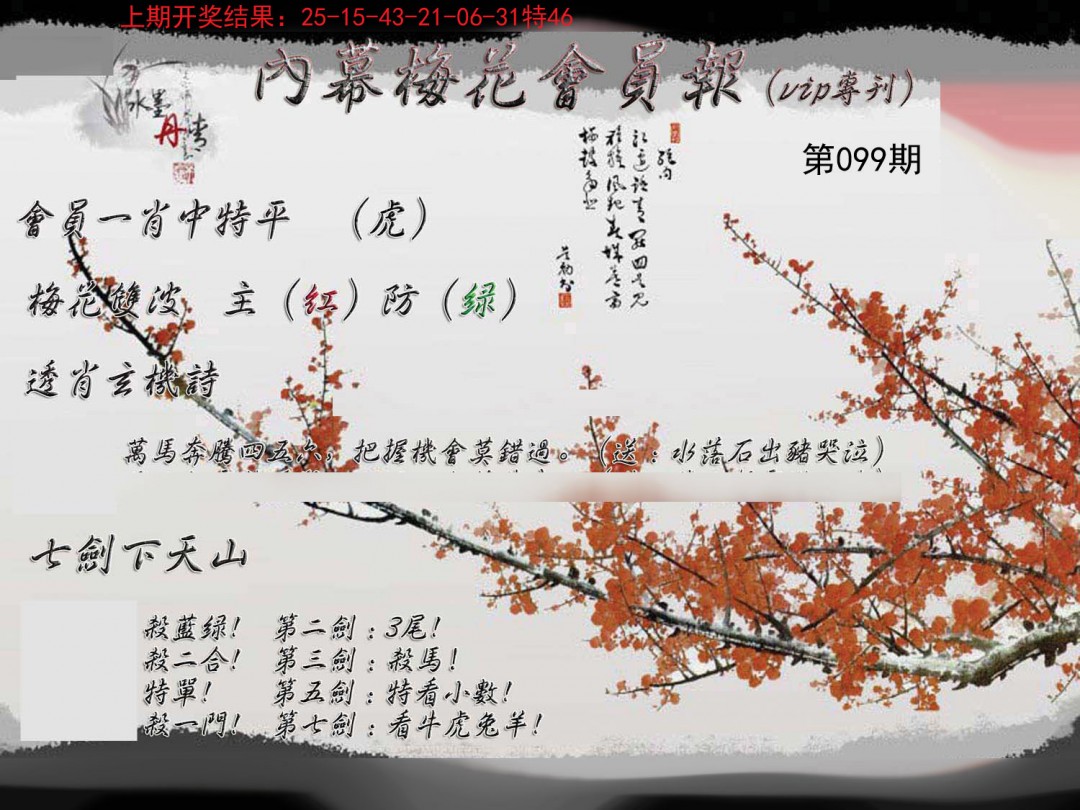 上期开奖结果：25-15-43-21-06-31特46
內幕梅花會員報（vip專刊）
水墨
丹青
第099期
會員一肖中特平　（虎）
梅花雙波　主（红）防（绿）
透肖玄機詩
萬馬奔騰四五六，把握機會莫錯過。（送：水落石出豬哭泣）
七劍下天山
殺藍绿！　第二劍：3尾！
殺二合！　第三劍：殺馬！
特單！　第五劍：特看小數！
殺一門！　第七劍：看牛虎兔羊！